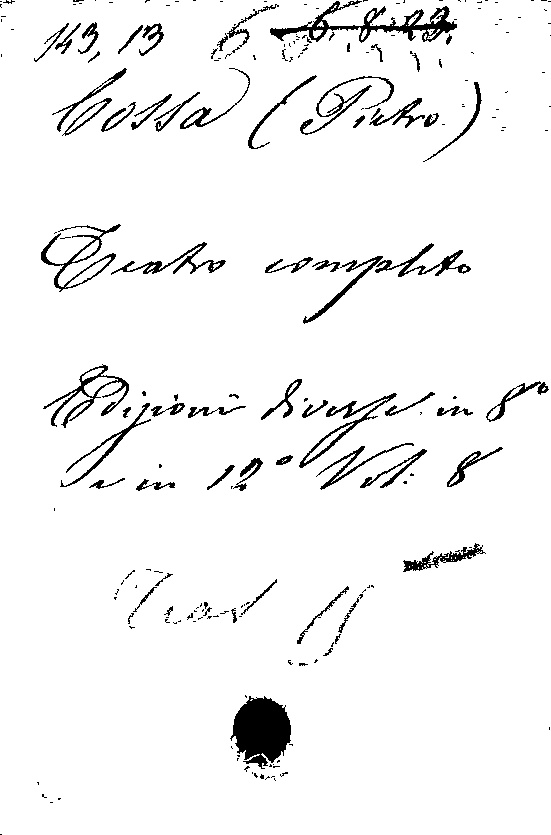 143, 13 6. 8. 23.
Cossa (Pietro)
Teatro completo
Edizioni diverse in 8º
e in 12º Vol: 8